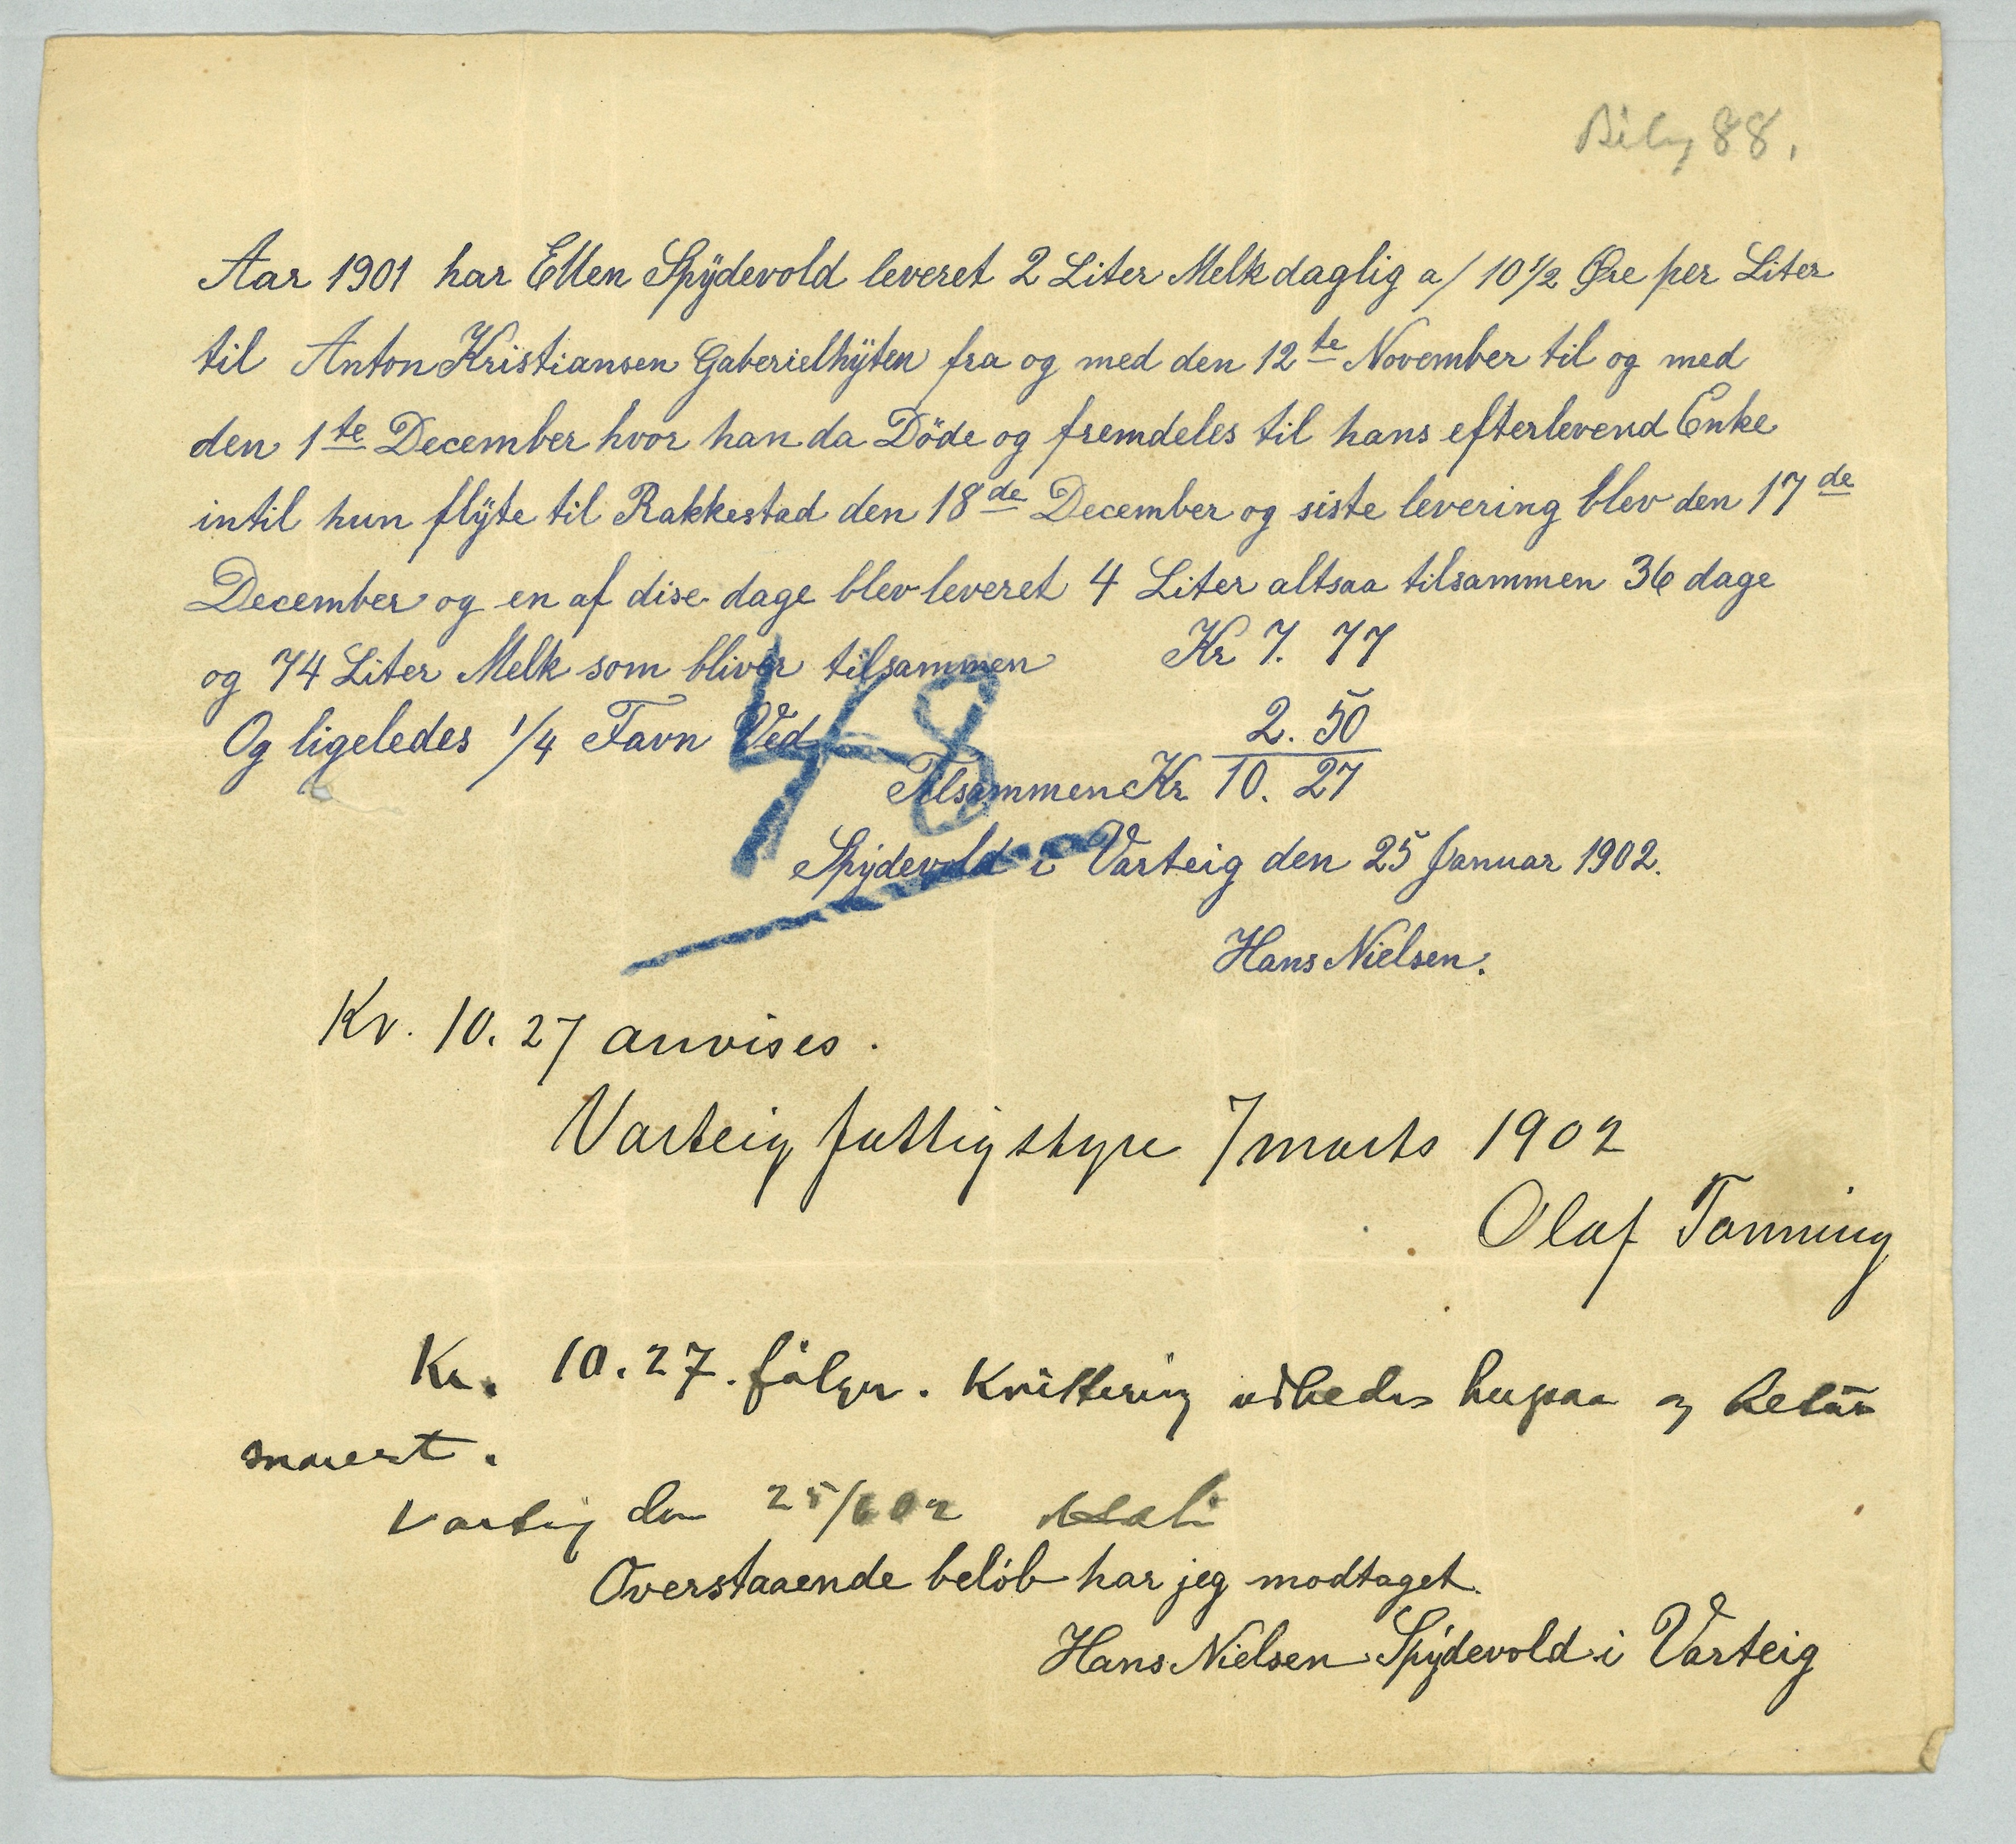 Bilag 88.
Aar 1901 har Ellen Spÿdevold leveret 2 Liter Melk daglig a/ 10 1/2 Øre per Liter
til Anton Kristiansen Gaberielhÿten fra og med den 12te November til og med
den 1te December hvor han da Döde og fremdeles til hans efterlevend Enke
intil hun flÿte til Rakkestad den 18de December og siste levering blev den 17de
December og en af dise dage blev leveret 4 Liter altsaa tilsammen 36 dage
og 74 Liter Melk som bliver tilsammen Kr 7. 77
Og ligeledes 1/4 Favn Ved 2. 50
Tilsammen Kr 10. 27
48
Spÿdevold i Varteig den 25 Januar 1902.
Hans Nielsen.
Kr. 10. 27 anvises.
Varteig fattigstyre 7 marts 1902
Olaf Tanning
Kr. 10.27. følger. Kvittering udbedes herpaa og retur
snarest.
Varteig den 25/6 02
Overstaaende beløb har jeg modtaget.
Hans Nielsen Spÿdevold i Varteig